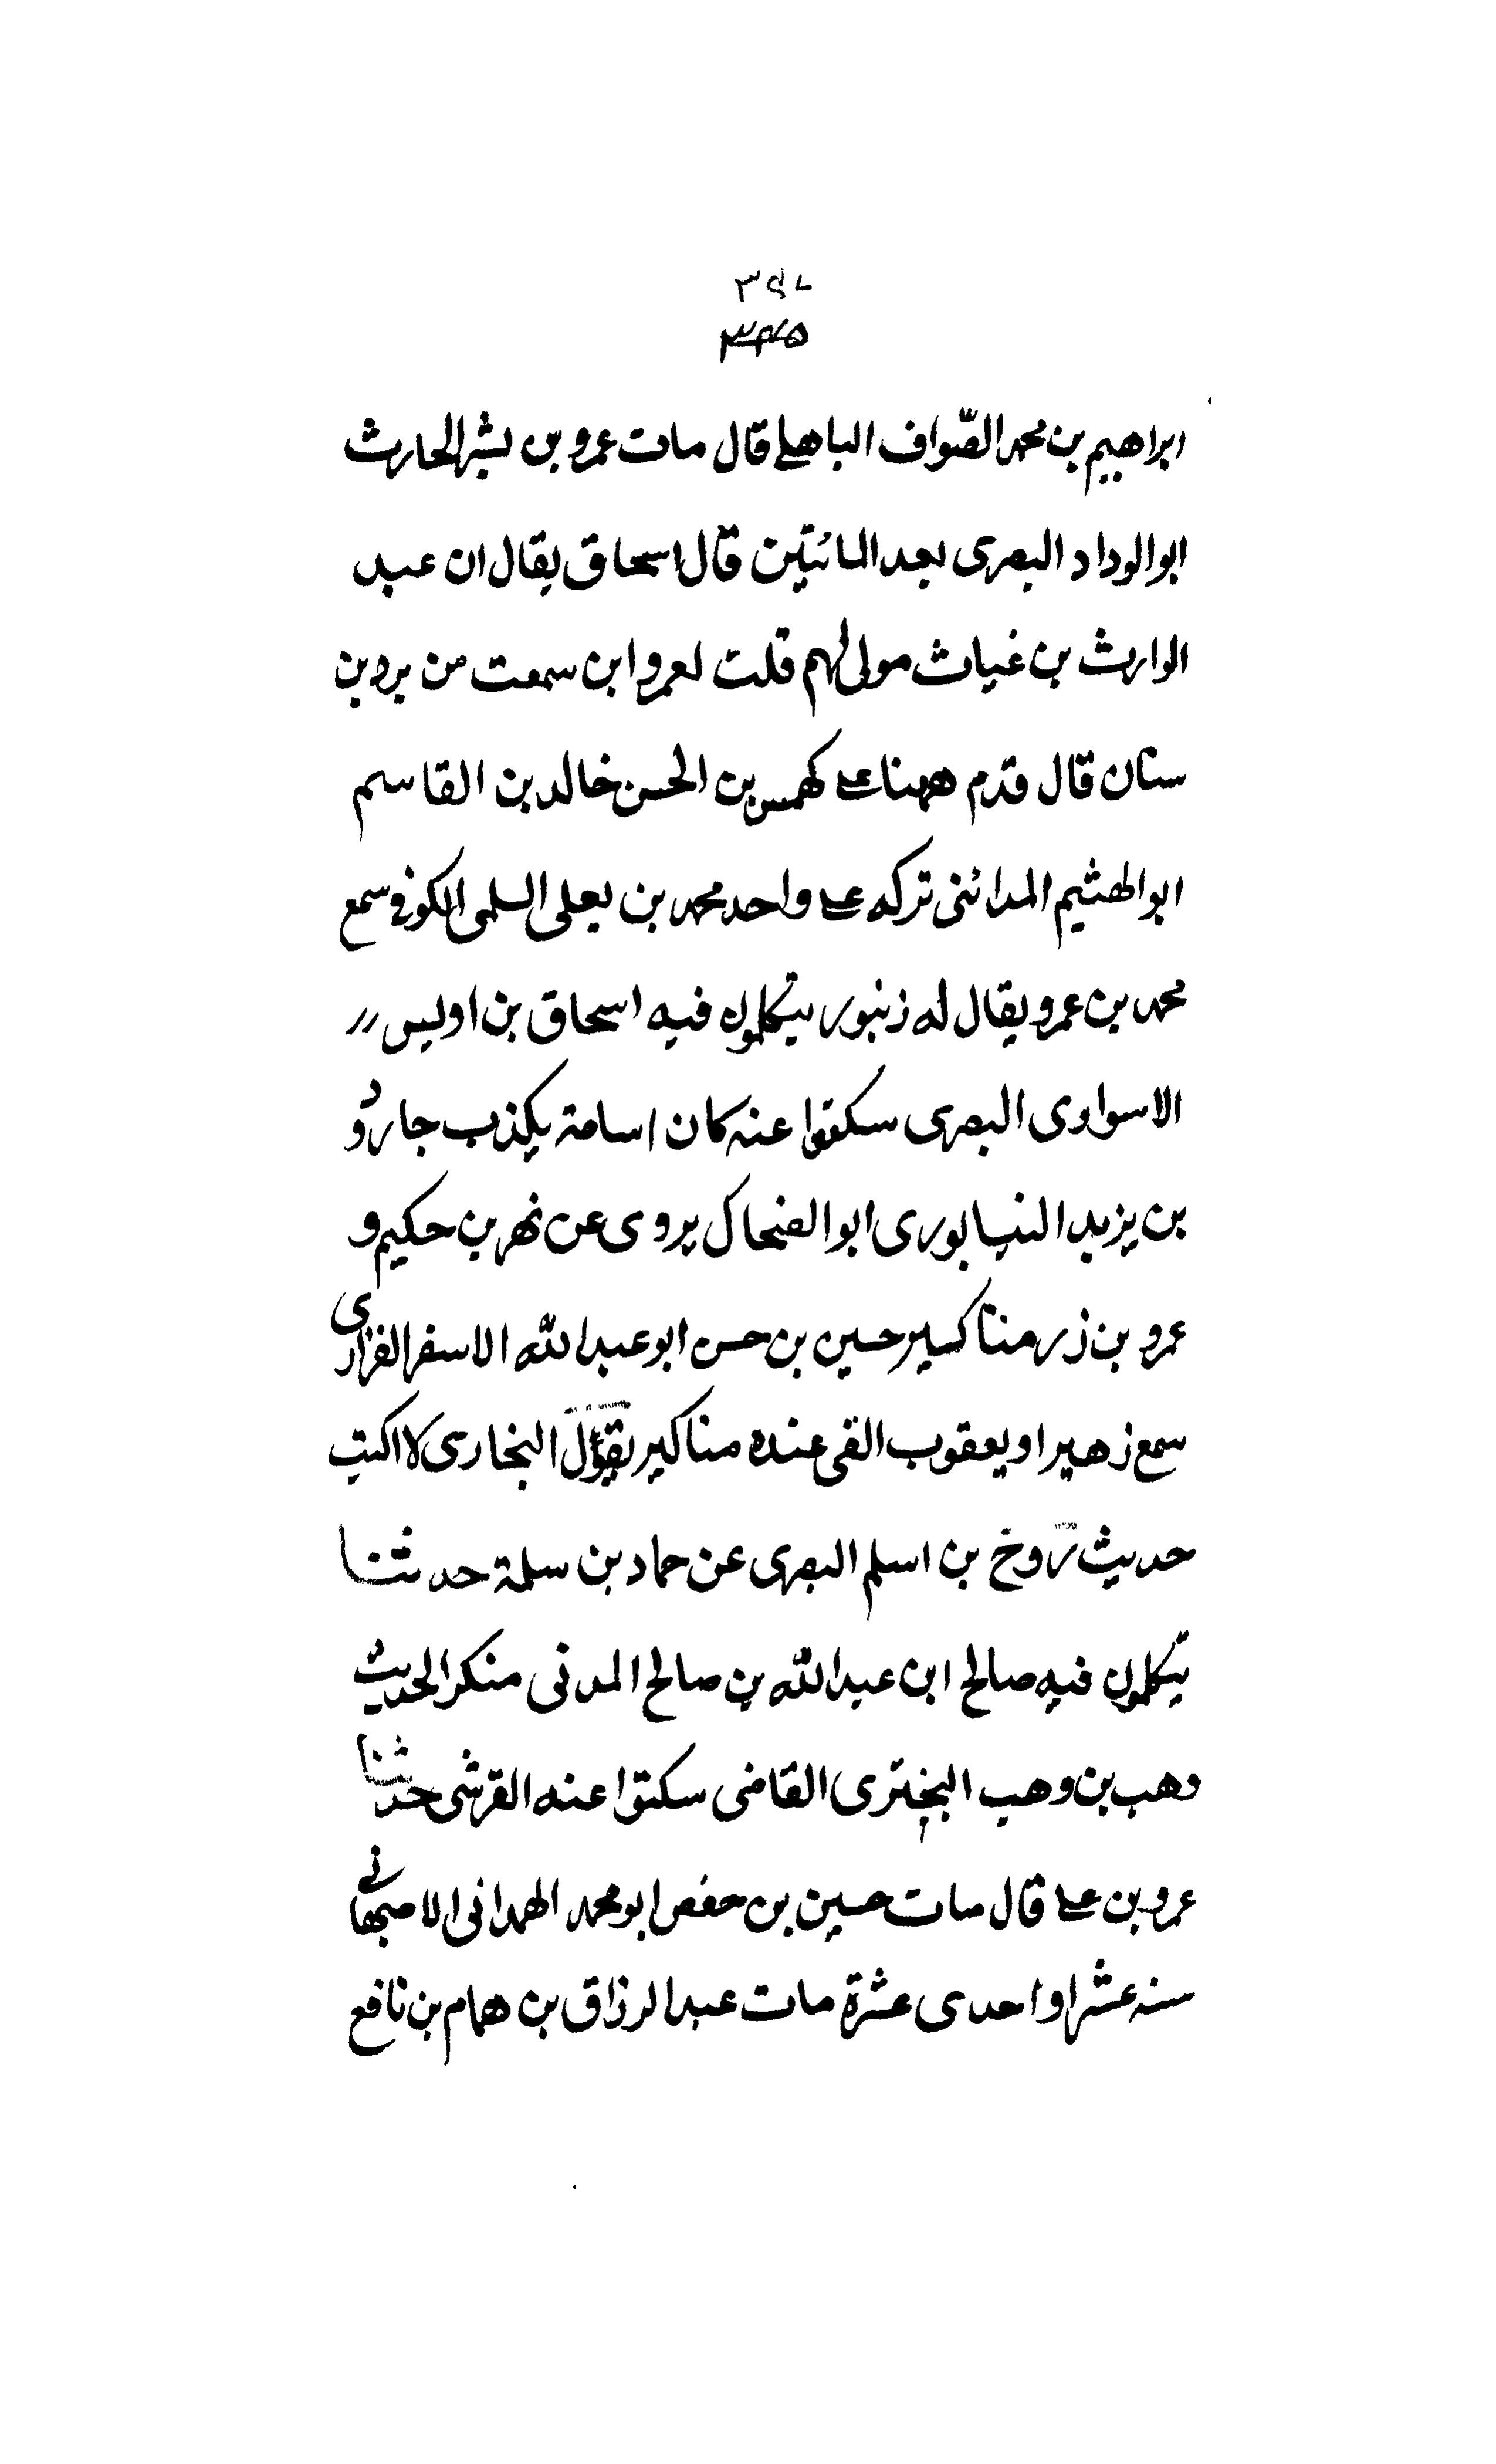 ابراهيم بن محمد الصّواف الباهلے قال مات عمرو بن بشر الحارث
ابو الوداد البصرى بعد المائتين قال اسحاق يقال ان عبد
الوارث بن غياث مولى لهم قلت لعمرو ابن سمعت من برد بن
سنان قال قدم ههنا علے كهمس بن الحسن خالد بن القاسم
ابو الهثيم المدائنى تركه علے واحد محمد بن يعلى السلمى الكوفى سمع
محمد بن عمرو يقال له زنبور يتكلمون فيه اسحاق بن اويس
الاسوارى البصرى سكتوا عنه كان اسامة يكذب جارود
بن يزيد النيسابورى ابو الضحاك يروى عن نهر بن حكيم و
عمرو بن ذر مناكير حسين بن حسن ابو عبد الله الاسفر الفزارى
سمع زهيرا و يعقوب القمى عنده مناكير يقول البخارى لا اكتب
حديث روح بن اسلم البصرى عن حماد بن سلمة حدثنا
يتكلمون فيه صالح ابن عبد الله بن صالح المدنى منكر الحديث
وهب بن وهب البخترى القاضى سكتوا عنه القرشى حدثنا
عمرو بن علے قال مات حسين بن حفص ابو محمد الهمدانى الاصبهانى
سنة عشر او احدى عشرة مات عبد الرزاق بن همام بن نافع